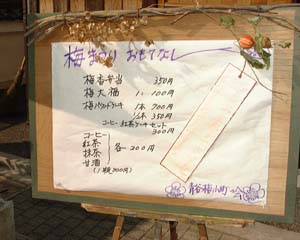 梅まつり おもてなし
梅香弁当 350円
梅大福 1ヶ 100円
梅パウンドケーキ 1本 700円
½本 350円
コーヒー 紅茶 ケーキセット
300円
コーヒー
紅茶
抹茶
甘酒
各 200円
青谷梅小町